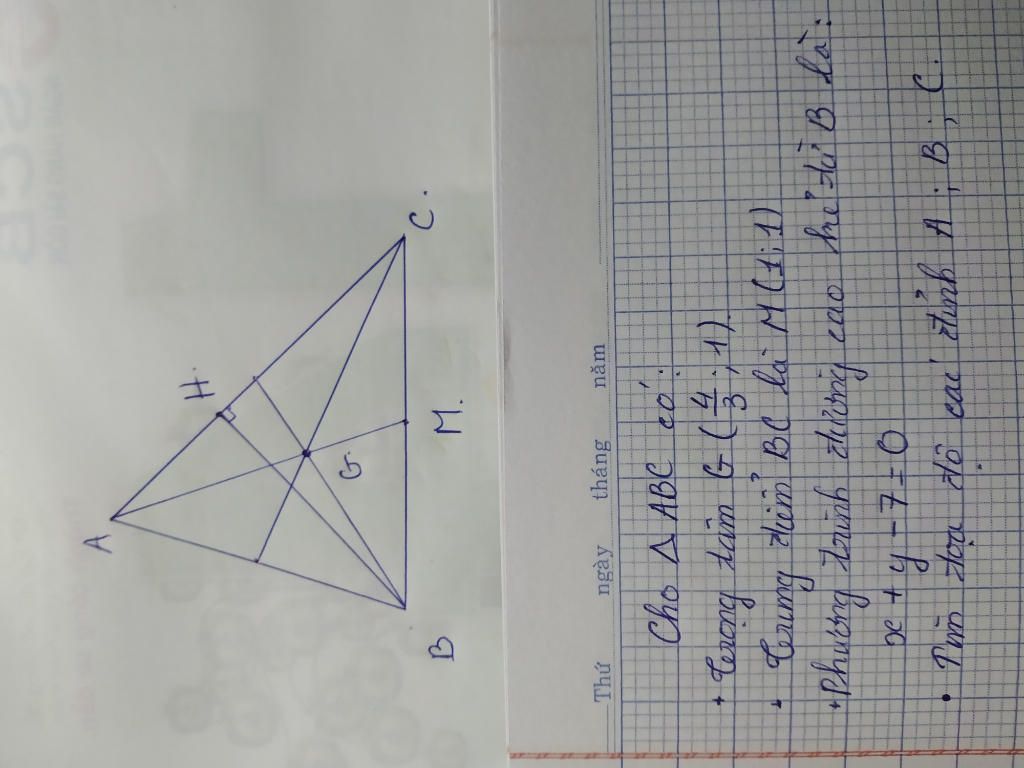 A
H.
G
B
M.
C.
Thứ ngày tháng năm
Cho △ABC có:
+ Trọng tâm G (4/3; 1).
+ Trung điểm BC là M (1; 1)
+ Phương trình đường cao kẻ từ B là:
x + y - 7 = 0
• Tìm tọa độ các đỉnh A; B; C.